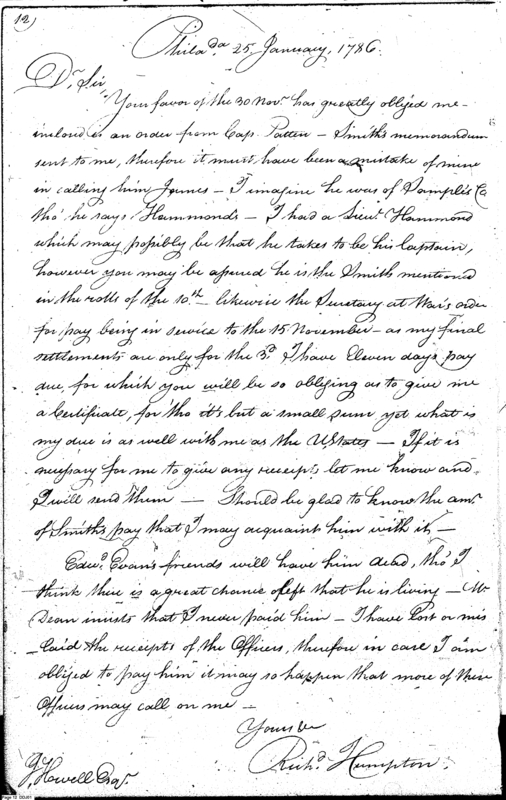 12)
Philada. 25, January, 1786.
Dr. Sir,
Your favor of the 30 Novr. has greatly oblijed me -
inclosed is an order from Cap. Patten - Smith's memorandum
sent to me, therefore it must have been a mistake of mine
in calling him James - I imagine he was of Sample's Co
tho' he says Hammond's - I had a Lieut. Hammond
which may possibly be that he takes to be his Captain,
however you may be assured he is the Smith mentioned
in the rolls of the 10th - likewise the Secretary at War's order
for pay being in service to the 15 November - as my final
settlements are only for the 3d. I have Eleven days pay
due, for which you will be so obliging as to give me
a Certificate, for tho' it's but a small sum yet what is
my due is as well with me as the U,States - If it is
necessary for me to give any receipts let me know and
I will send them - Should be glad to know the amt.
of Smith's pay that I may acquaint him with it, -
Edwd. Evans friends will have him dead, tho' I
think there is a great chance left that he is living - Mr
Dean insists that I never paid him - I have lost or mis
laid the receipts of the Officers, therefore in case I am
oblijed to pay him it may so happen that more of these
Officers may call on me -
Yours &c
Richd. Humpton.
Jy. Howell Esqr.
Page 12 DDJ01